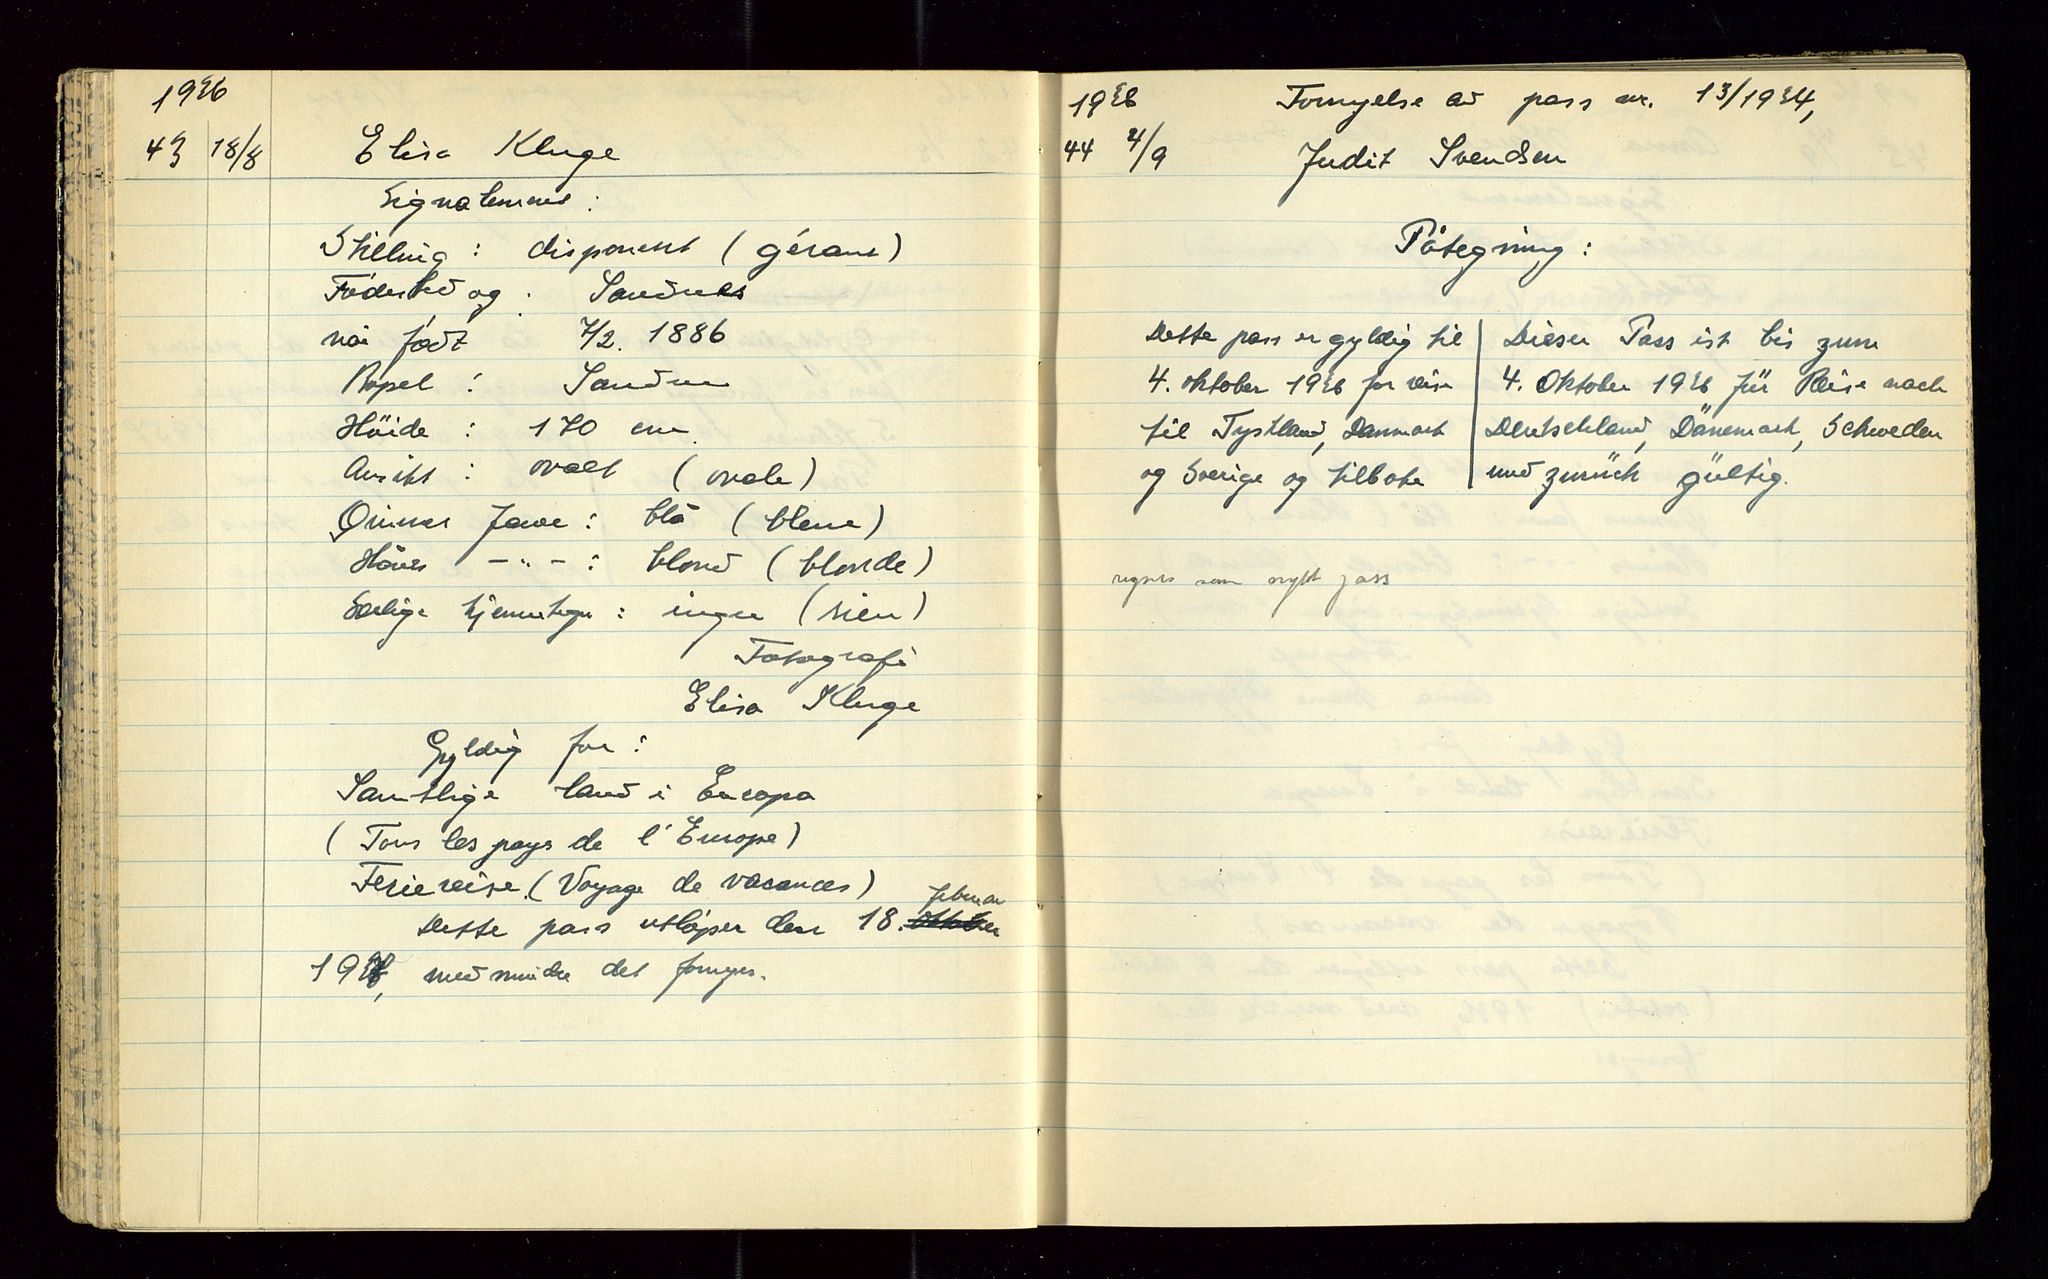 1936
43 18/8 Elisa Kluge
Signalement:
Stilling: disponent (gérant)
Fødested og: Sandnes
når født 7/2. 1886
Bopel: Sandnes
Höide: 170 cm.
Ansikt: ovalt (ovale)
Öinnes farve: blå (bleue)
Hårets -"-: blond (blonde)
Særlige kjennetegn: ingen (rien)
Fotografi
Elisa Kluge
Gyldig for:
Samtlige land i Europa
(Tous les pays de l'Europe)
Feriereise (Voyage de vacances)
februar
Dette pass utløper den 18. oktober
1937, med mindre det fornyes.
1936 Fornyelse av pass nr. 13/1934,
44 4/9 Judit Svendsen
Påtegning:
Dette pass er gyldig til
4. oktober 1936 for reise
til Tyskland, Danmark
og Sverige og tilbake
Dieser Pass ist bis zum
4. Oktober 1936 für Reise nach
Deutschland, Dänemark, Schweden
und zurück gültig.
regnes som nytt pass